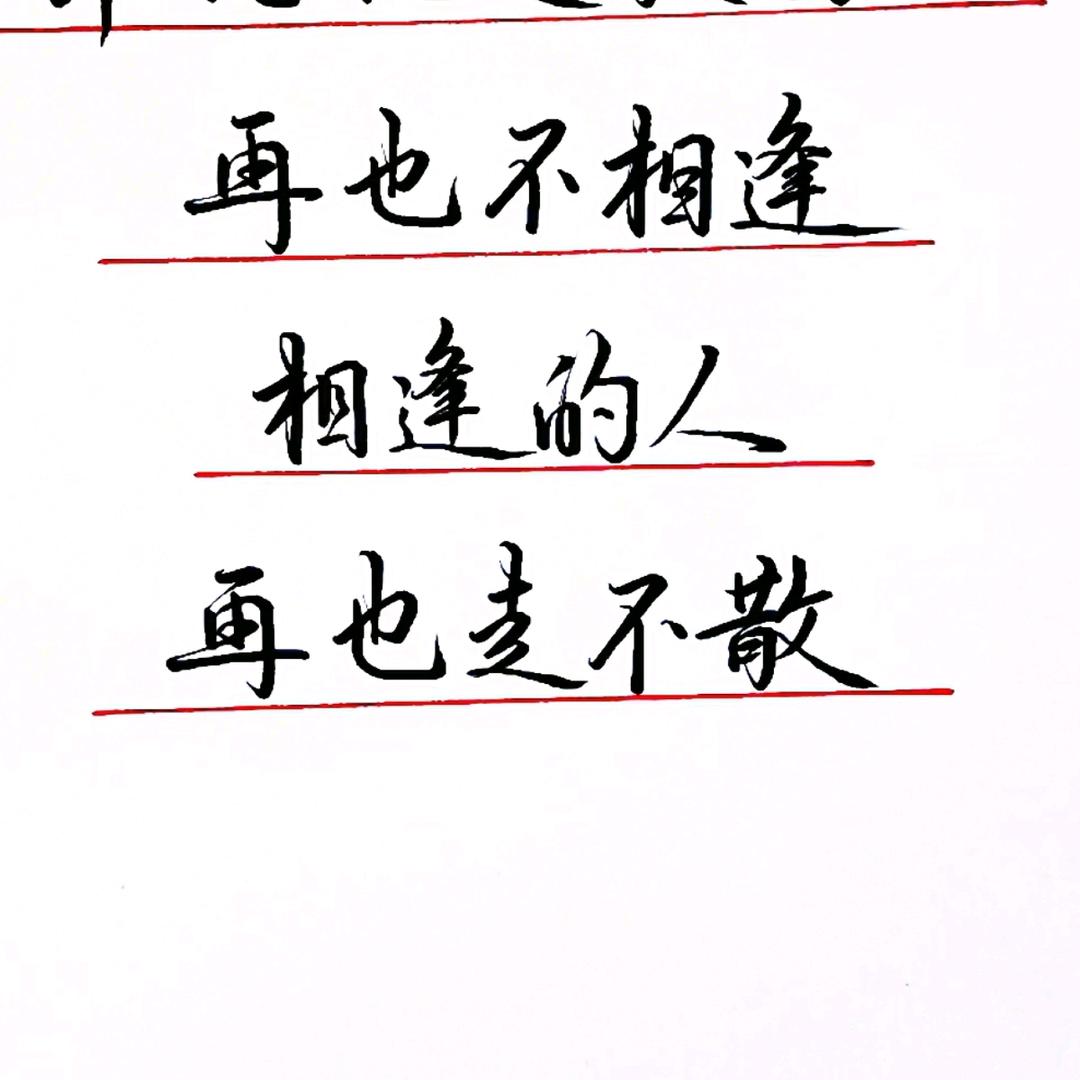 再也不相逢
相逢的人
再也走不散